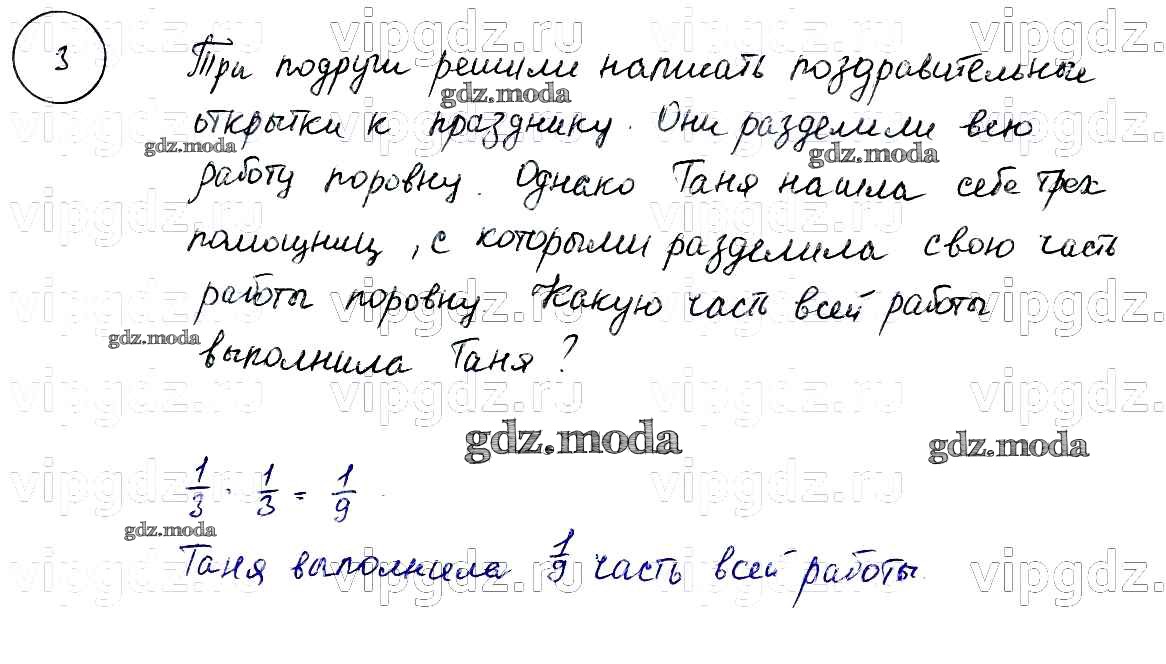 3
Три подруги решили написать поздравительные
открытки к празднику. Они разделили всю
работу поровну. Однако Таня нашла себе трех
помощниц, с которыми разделила свою часть
работы поровну. Какую часть всей работы
выполнила Таня?
1/3 · 1/3 = 1/9.
Таня выполнила 1/9 часть всей работы.
vipgdz.ru
gdz.moda